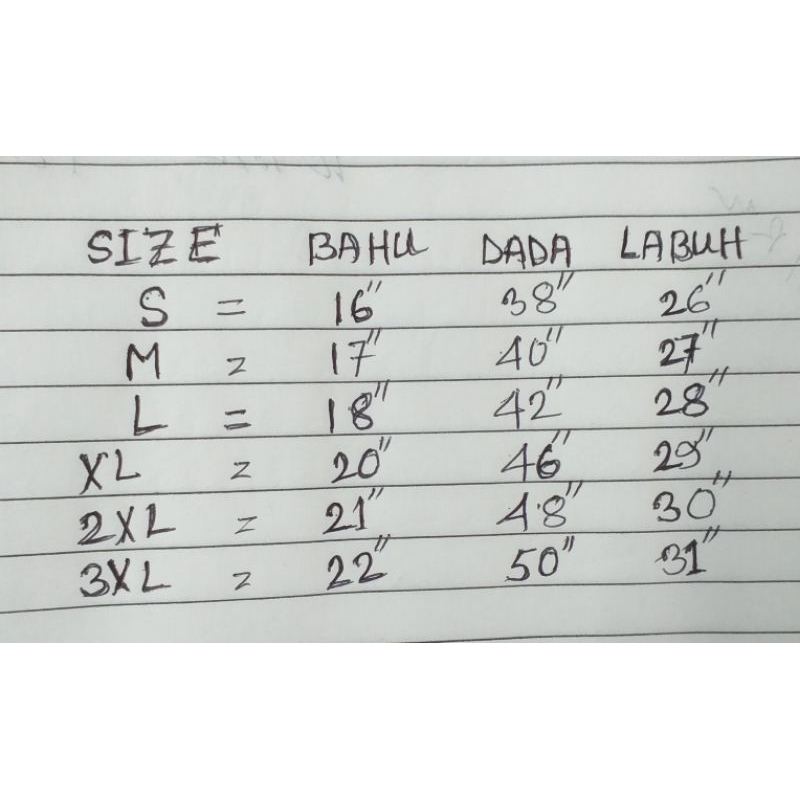 SIZE BAHU DADA LABUH
S = 16" 38" 26"
M = 17" 40" 27"
L = 18" 42" 28"
XL = 20" 46" 29"
2XL = 21" 48" 30"
3XL = 22" 50" 31"